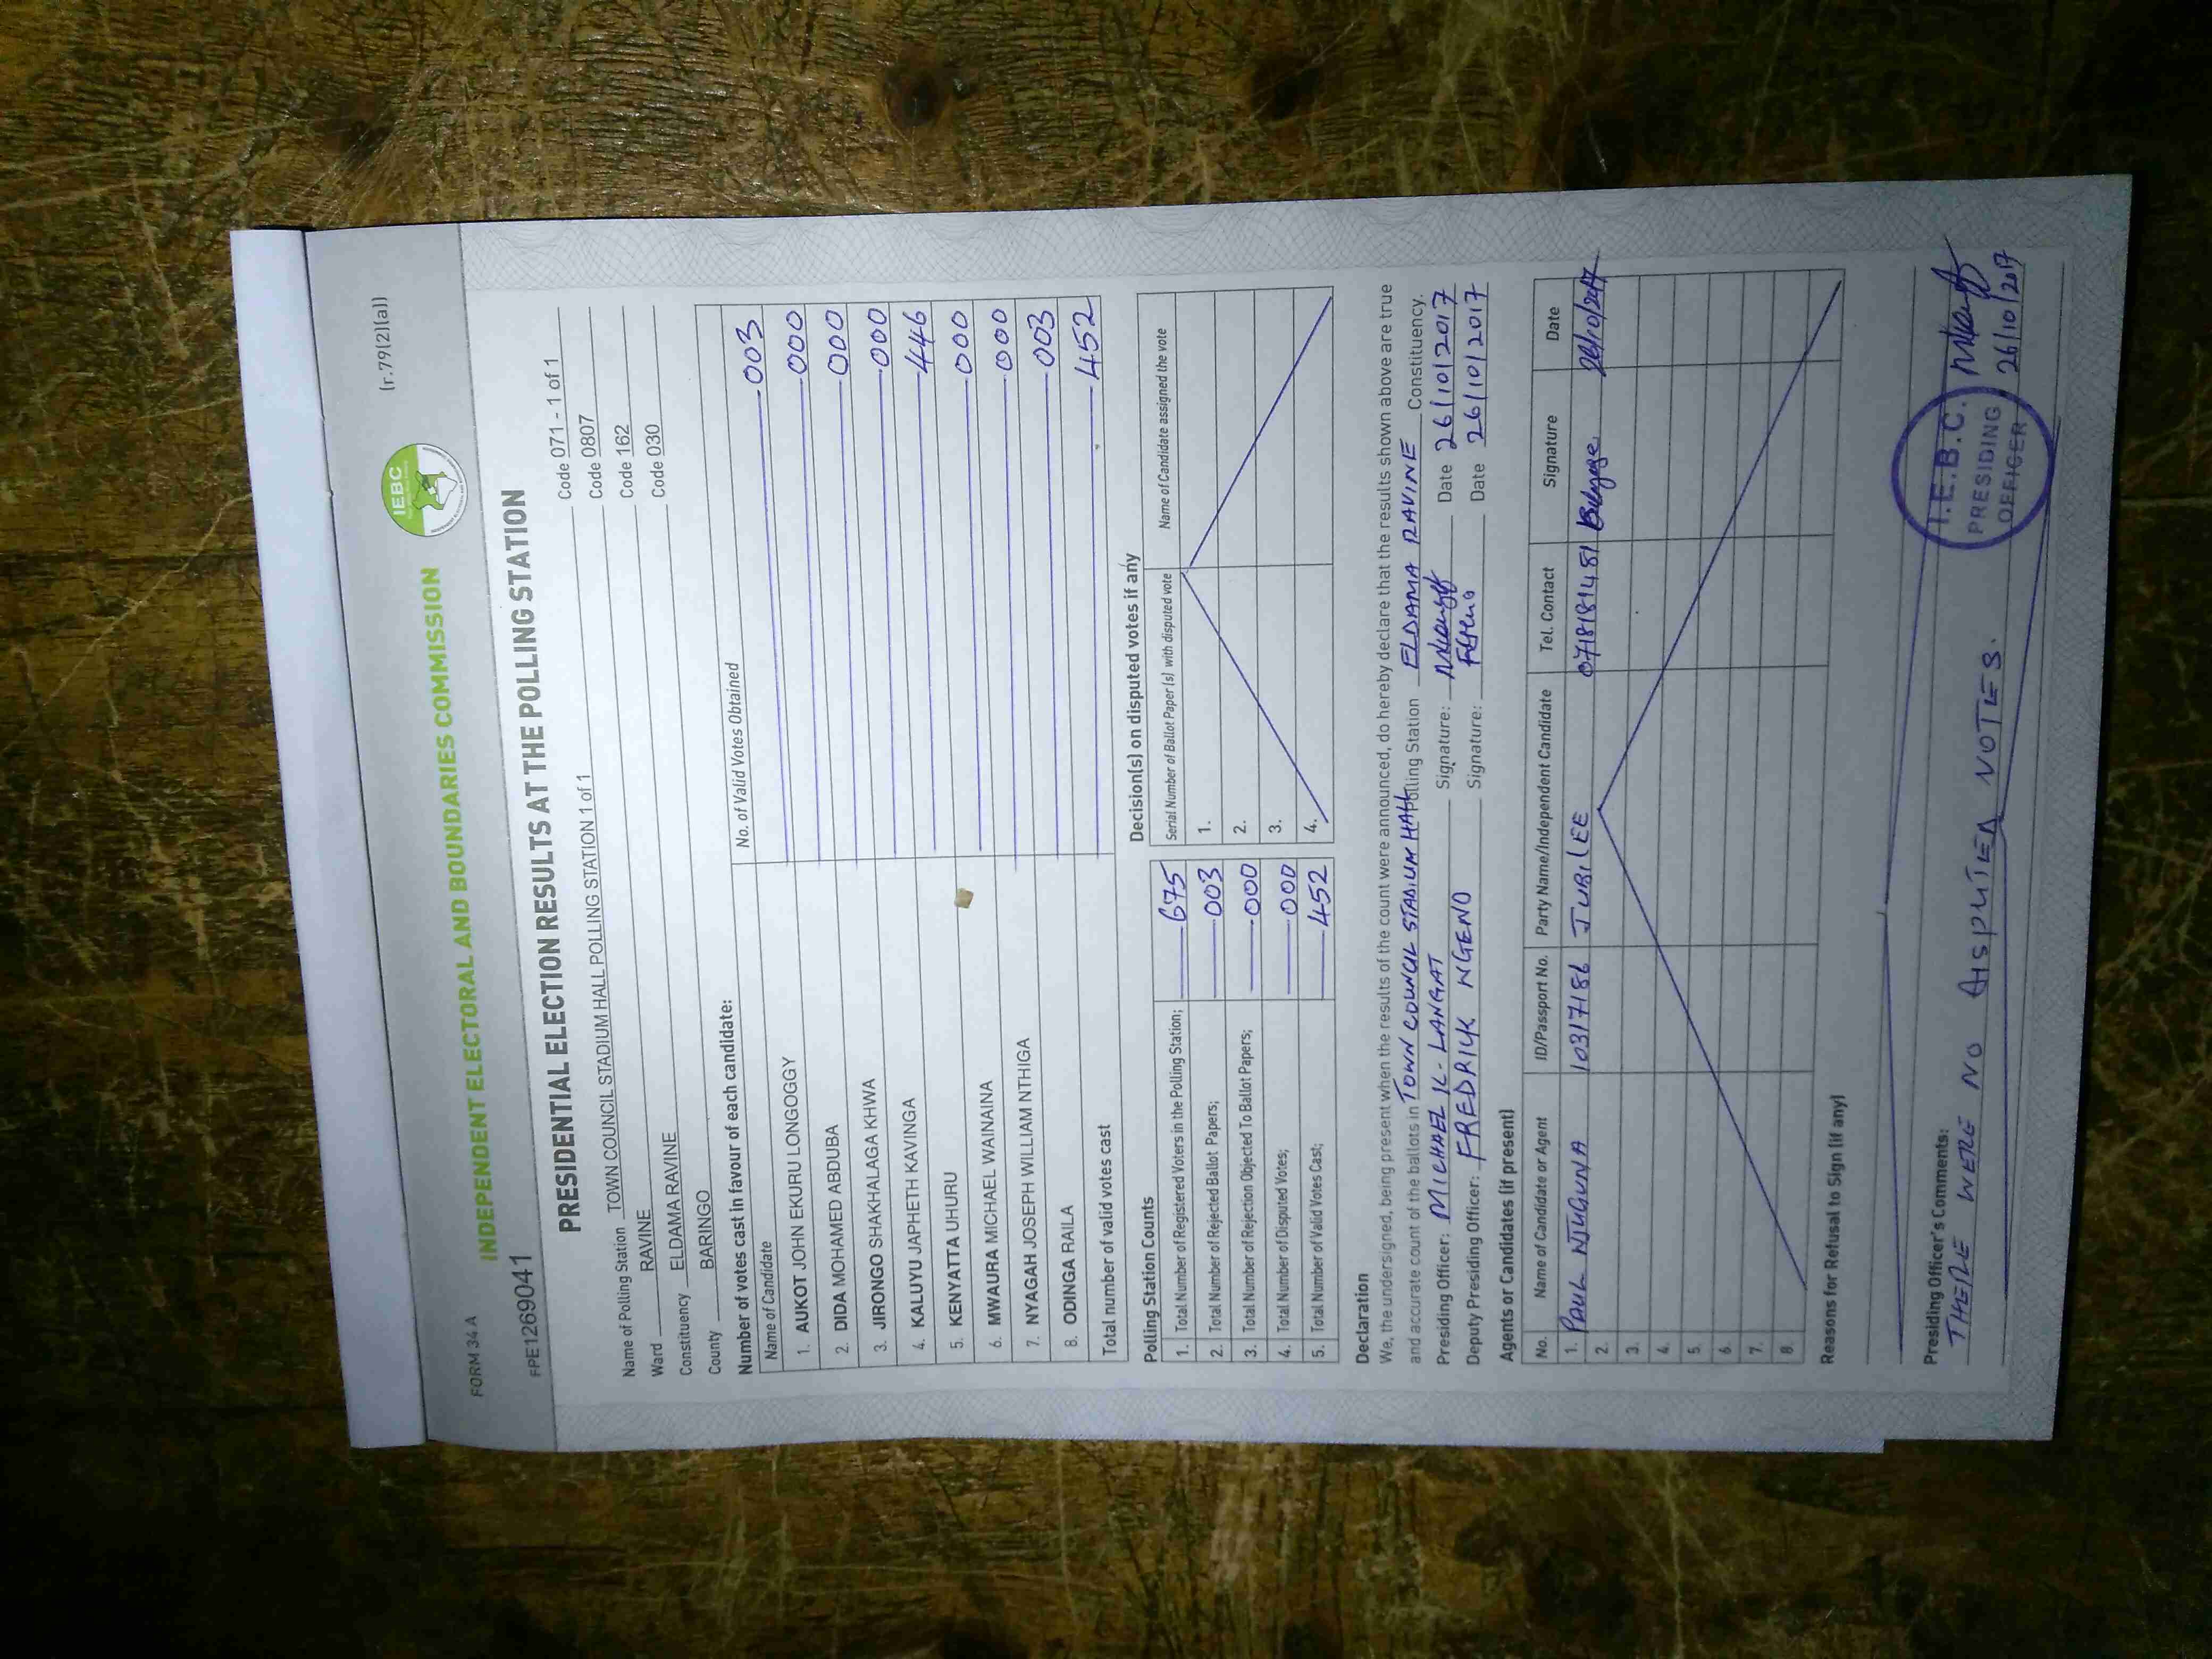 FORM 34A
(r.79(2)(a))
INDEPENDENT ELECTORAL AND BOUNDARIES COMMISSION
IEBC
FPE1269041
PRESIDENTIAL ELECTION RESULTS AT THE POLLING STATION
Name of Polling Station TOWN COUNCIL STADIUM HALL POLLING STATION 1 of 1 Code 071 - 1 of 1
Ward RAVINE Code 0807
Constituency ELDAMA RAVINE Code 162
County BARINGO Code 030
Number of votes cast in favour of each candidate:
Name of Candidate No. of Valid Votes Obtained
1. AUKOT JOHN EKURU LONGOGGY 003
2. DIDA MOHAMED ABDUBA 000
3. JIRONGO SHAKHALAGA KHWA 000
4. KALUYU JAPHETH KAVINGA 000
5. KENYATTA UHURU 446
6. MWAURA MICHAEL WAINAINA 000
7. NYAGAH JOSEPH WILLIAM NTHIGA 000
8. ODINGA RAILA 003
Total number of valid votes cast 452
Polling Station Counts
1. Total Number of Registered Voters in the Polling Station; 675
2. Total Number of Rejected Ballot Papers; 003
3. Total Number of Rejection Objected To Ballot Papers; 000
4. Total Number of Disputed Votes; 000
5. Total Number of Valid Votes Cast; 452
Decision(s) on disputed votes if any
Serial Number of Ballot Paper (s) with disputed vote Name of Candidate assigned the vote
1.
2.
3.
4.
Declaration
We, the undersigned, being present when the results of the count were announced, do hereby declare that the results shown above are true
and accurate count of the ballots in TOWN COUNCIL STADIUM HALL Polling Station ELDAMA RAVINE Constituency.
Presiding Officer: MICHAEL K. LANGAT Signature: Date 26/10/2017
Deputy Presiding Officer: FREDRICK NGENO Signature: Date 26/10/2017
Agents or Candidates (if present)
No. Name of Candidate or Agent ID/Passport No. Party Name/Independent Candidate Tel. Contact Signature Date
1. PAUL NJUGUNA 10317186 JUBILEE 0718181481 26/10/2017
2.
3.
4.
5.
6.
7.
8.
Reasons for Refusal to Sign (if any)
Presiding Officer's Comments:
THERE WERE NO DISPUTED NOTES.
I.E.B.C.
PRESIDING
OFFICER
26/10/2017